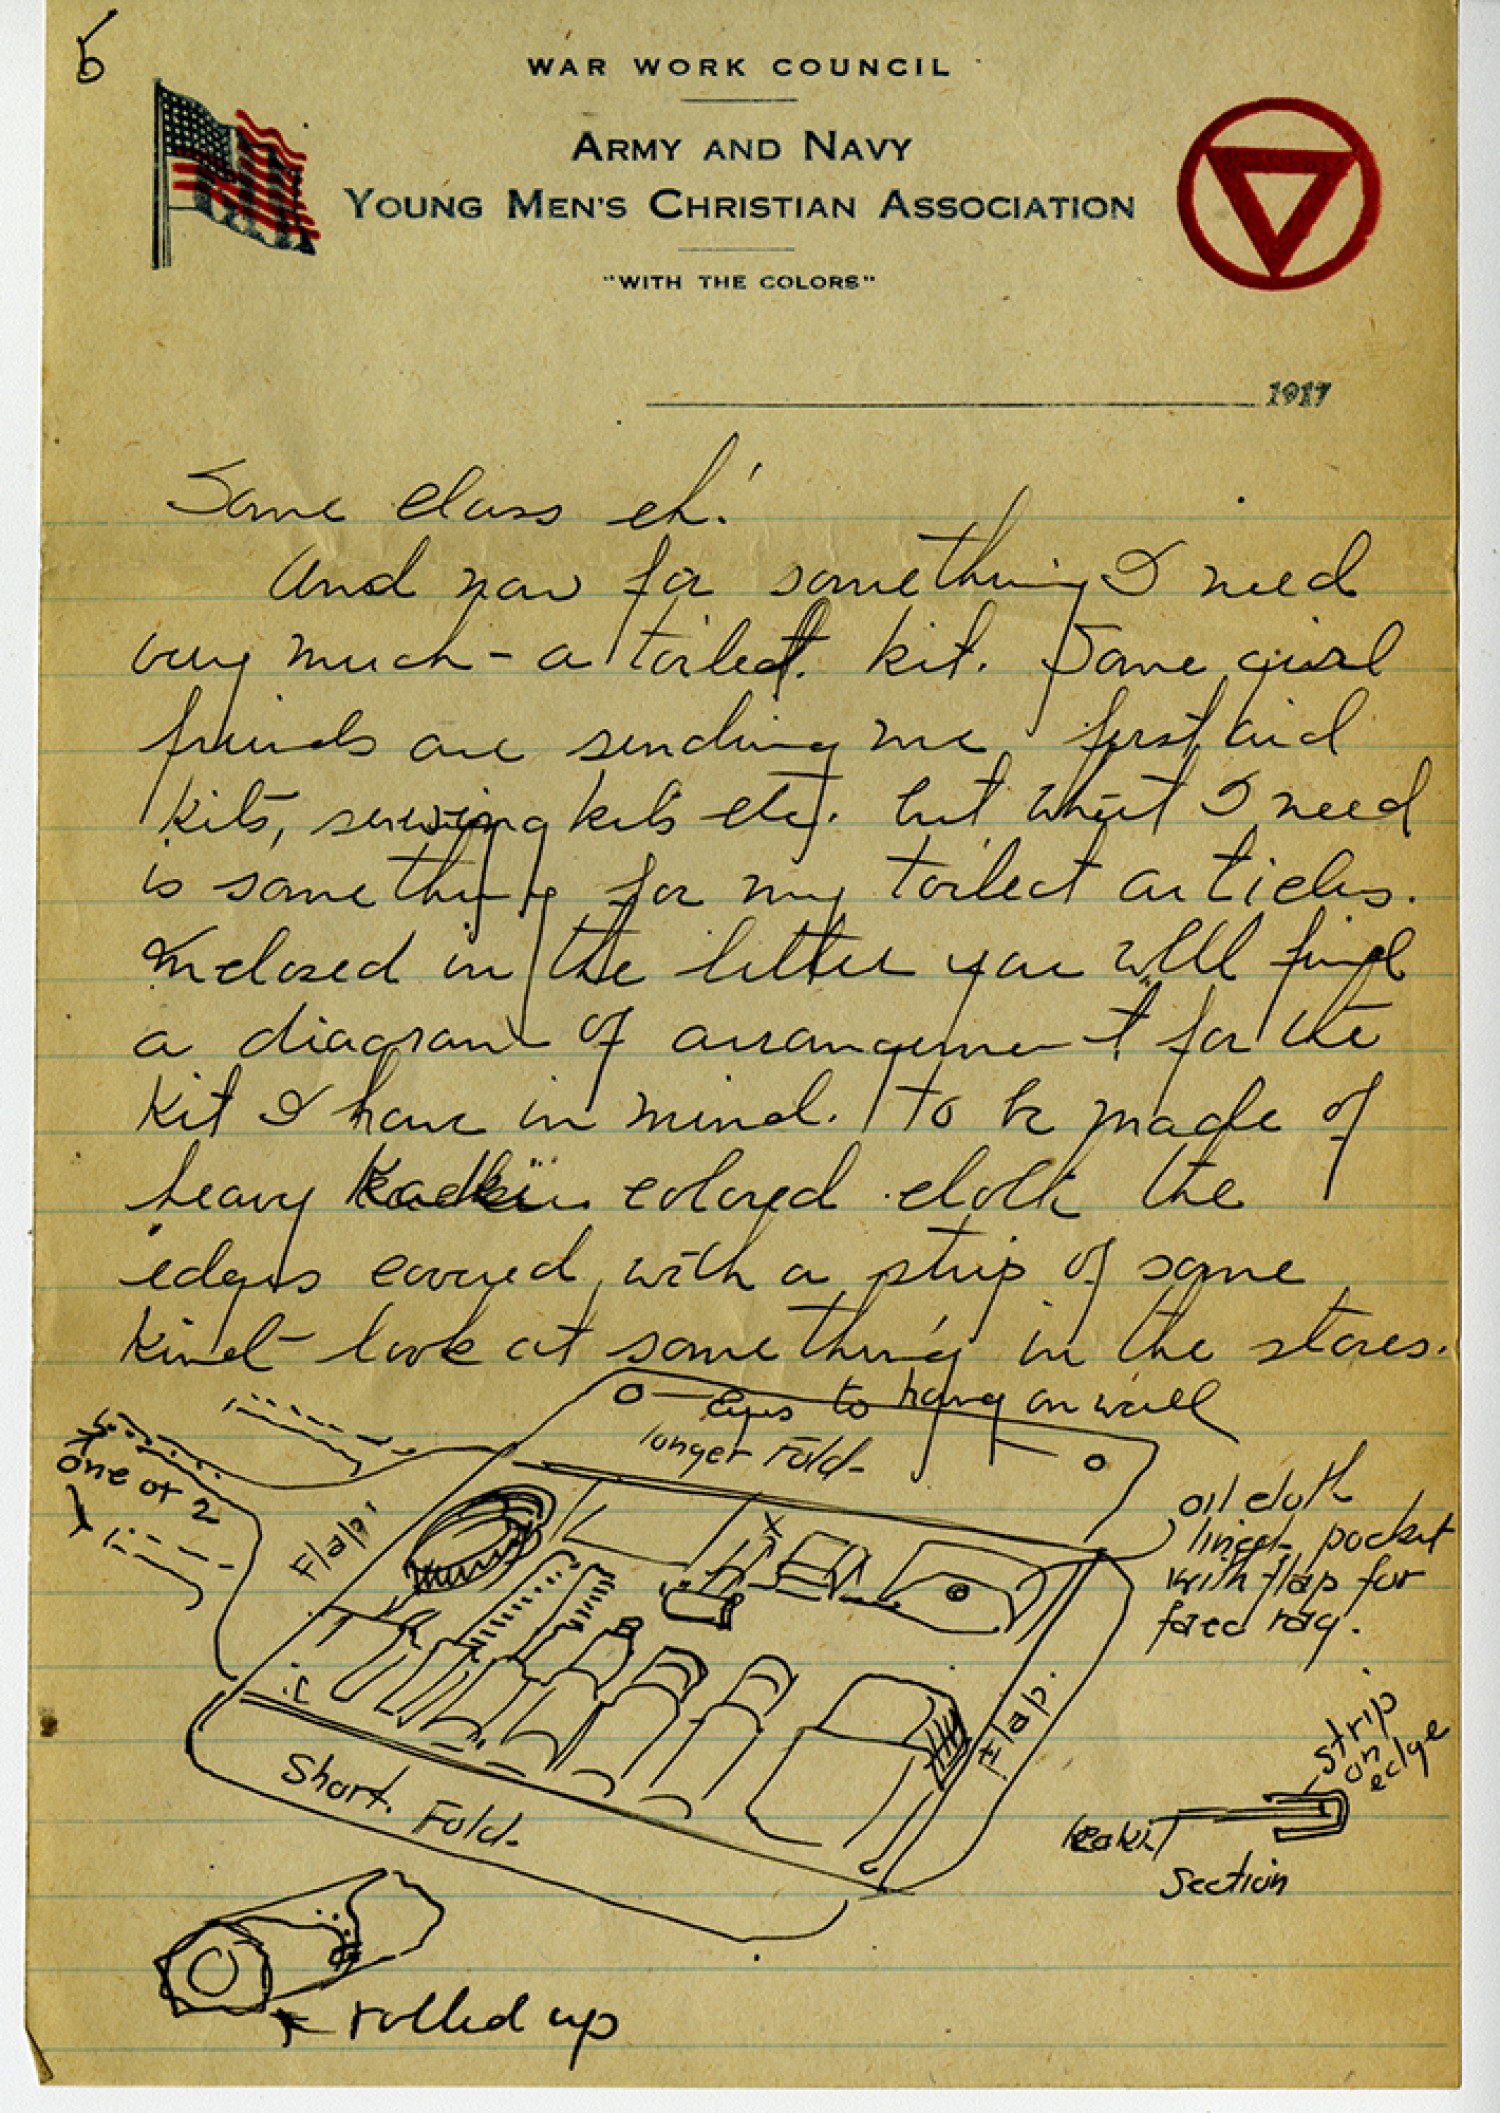 5
WAR WORK COUNCIL
ARMY AND NAVY
YOUNG MEN'S CHRISTIAN ASSOCIATION
"WITH THE COLORS"
1917
Some class eh!
And now for something I need
very much - a toilet kit. Some girl
friends are sending me first aid
kits, sewing kits etc. but what I need
is something for my toilect articles.
Inclosed in the letter you will find
a diagram of arrangement for the
kit I have in mind. To be made of
heavy colored cloth the
edges covered with a strip of some
kind - look at something in the stores.
Eyes to hang on wall
longer Fold-
one or 2
Flap
oil cloth
lined pocket
with flap for
face rag.
Flap.
Short. Fold-
strip
on
edge
section
rolled up